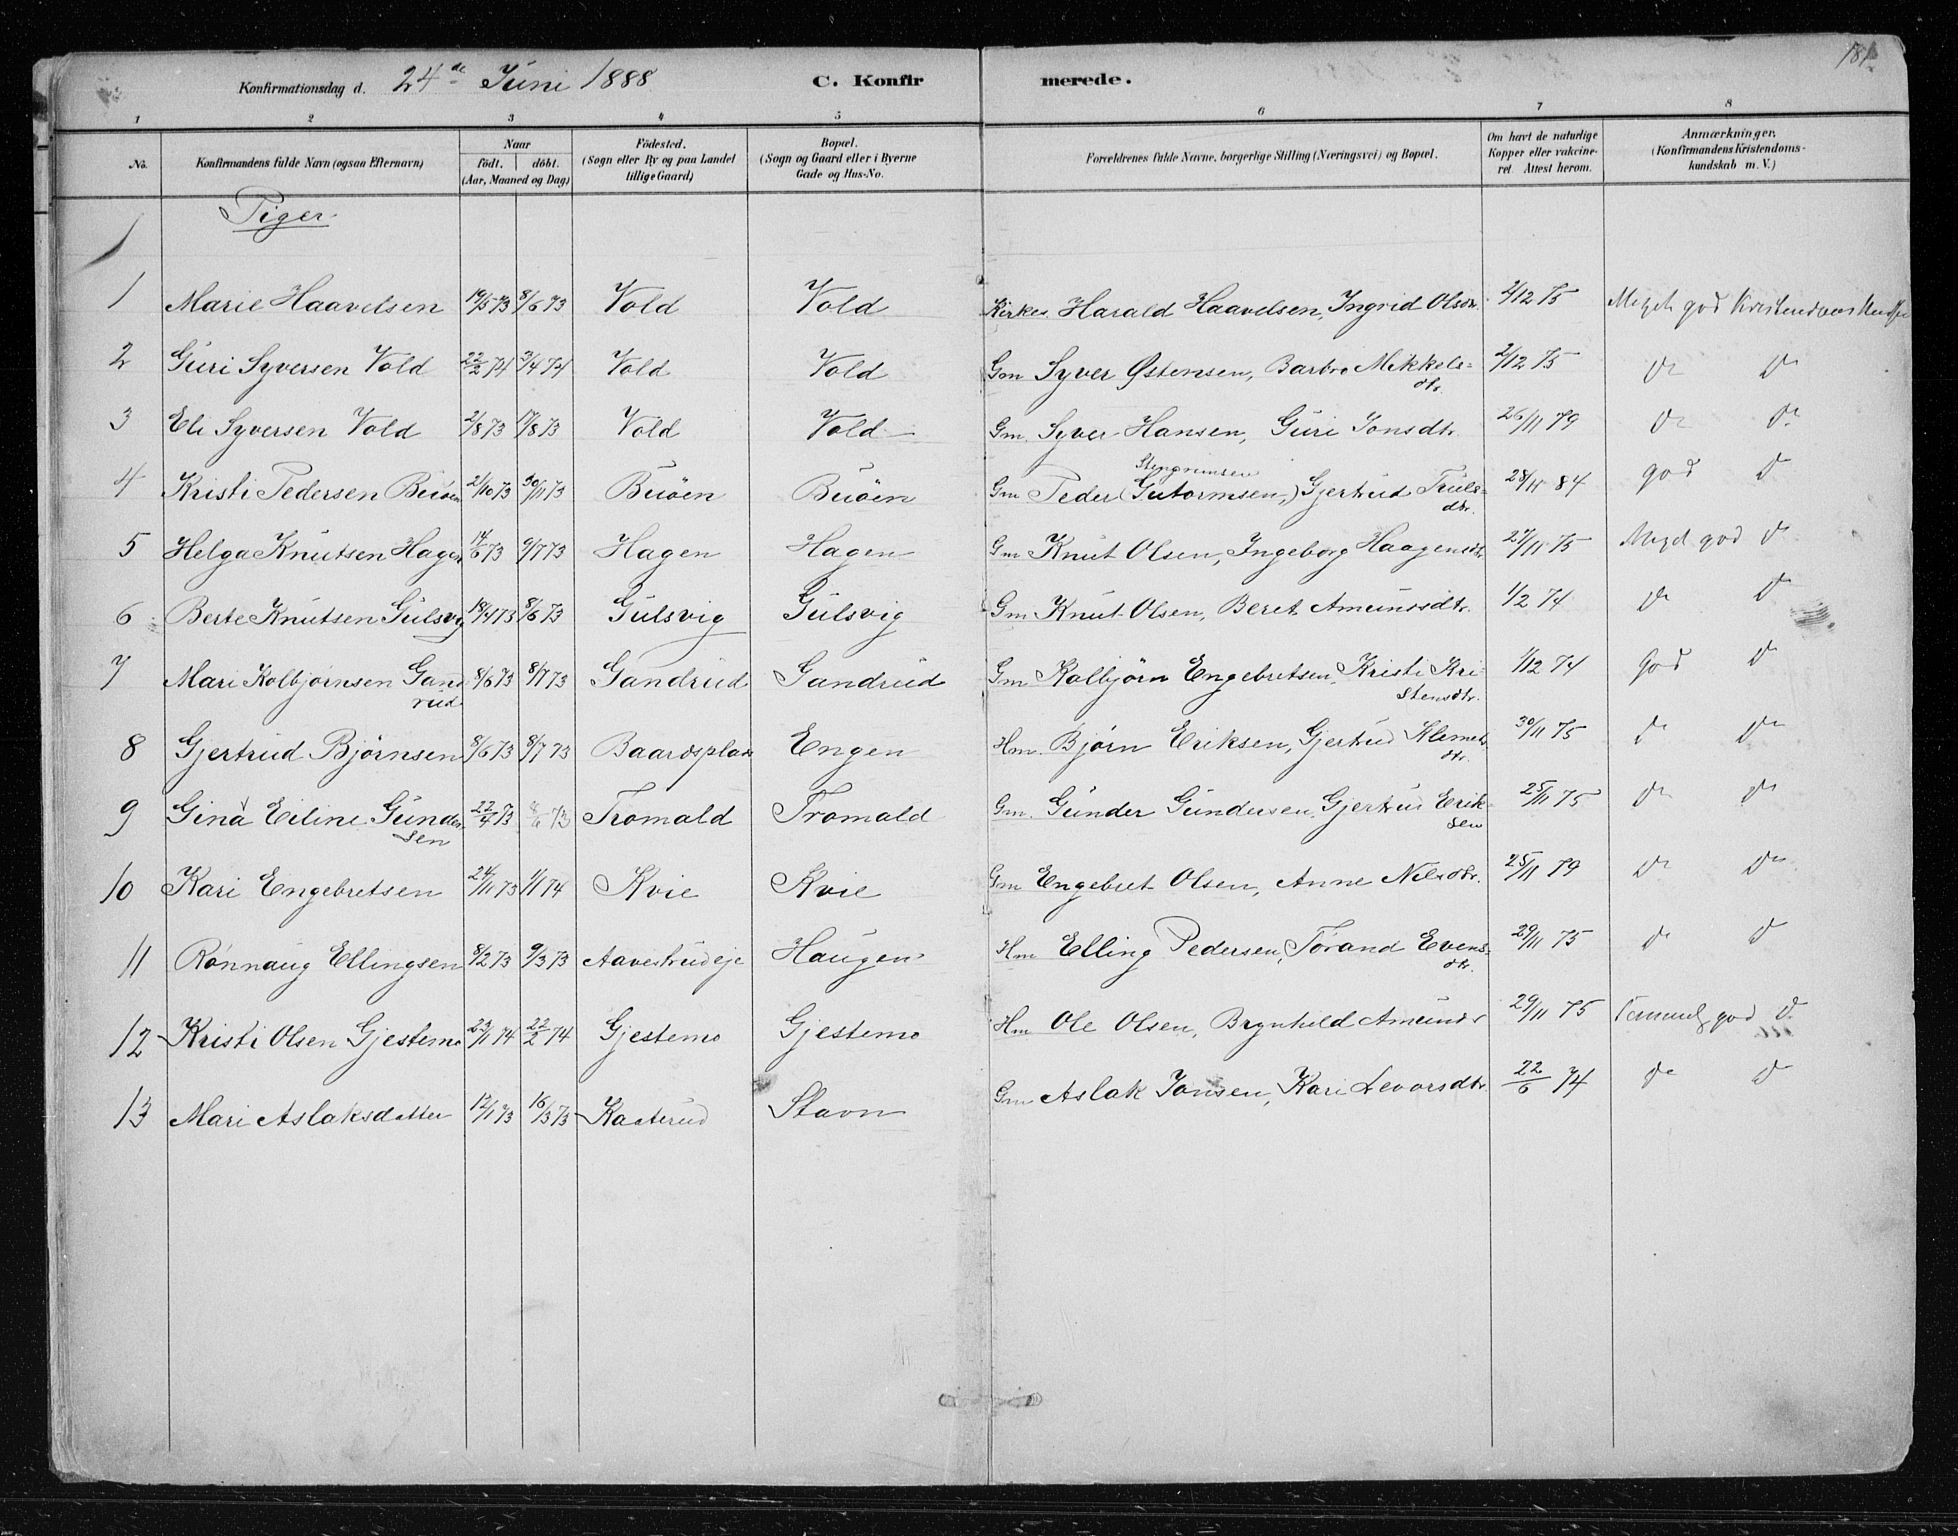 181.
Konfirmationsdag d. 24de Juni 1888 C. Konfirmerede.
1 2 3 4 5 6 7 8
No. Konfirmandens fulde Navn (ogsaa Efternavn) Naar født. døbt. (Aar, Maaned og Dag) Fødested. (Sogn eller By og paa Landet tillige Gaard) Bopæl. (Sogn og Gaard eller i Byerne Gade og Hus-No. Forældrenes fulde Navne, borgerlige Stilling (Næringsvei) og Bopæl. Om havt de naturlige Kopper eller vakcineret. Attest herom. Anmærkninger. (Konfirmandens Kristendomskundskab m. V.)
Piger
1 Marie Haavelsen 19/5 73 8/6 73 Vold Vold Kirkes. Harald Haavelsen, Ingrid Olsdr. 2/12 75 Meget god
2 Guri Syversen Vold 22/2 74 3/4 74 Vold Vold Gm Syver Østensen, Barbro Mikkelsdtr. 2/12 75 do do
3 Eli Syversen Vold 2/8 73 17/8 73 Vold Vold Gm. Syver Hansen, Guri Jonsdtr. 26/11 79 do do
4 Kristi Pedersen Buøen 2/10 73 30/11 73 Buöen Buöen Gm Peder (Gutormsen,) Stengrimsen Gjertrud Trulsdtr. 28/11 84 god do
5 Helga Knutsen Hagen 14/6 73 9/7 73 Hagen Hagen Gm Knut Olsen, Ingeborg Haagensdtr 27/11 75 Meget god do
6 Berte Knutsen Gulsvig 18/4 73 8/6 73 Gulsvig Gulsvig Gm Knut Olsen, Beret Amundsdtr. 1/2 74 do do
7 Mari Kolbjørnsen Gandrud 8/6 73 8/7 73 Gandrud Gandrud Gm Kolbjörn Engebretsen, Kristi Kristensdtr. 1/12 74 God do
8 Gjertrud Bjørnsen 8/6 73 8/7 73 Baardsplads Engen Hm. Bjørn Eriksen, Gjertrud Klemetsdtr. 30/11 75 do do
9 Gina Eiline Gundersen 22/4 73 8/6 73 Tromald Tromald Gm. Gunder Gundersen, Gjertrud Eriksen 25/11 75 do do
10 Kari Engebretsen 24/11 73 1/1 74 Kvie Kvie Gm Engebret Olsen, Anne Nilsdtr. 25/11 79 do do
11 Rønnaug Ellingsen 8/2 73 9/3 73 Aavestrudeje Haugen Hm Elling Pedersen, Tørand Evensdtr. 29/11 75 do do
12 Kristi Olsen Gjestemo 23/1 74 22/2 74 Gjestemo Gjestemo Hm Ole Olsen, Brynhild Amundsdr 29/11 75 Temmelg god do
13 Mari Aslaksdatter 12/1 73 16/3 73 Kaaterud Stavn Gm Aslak Jonsen, Kari Levorsdtr. 22/6 74 do do